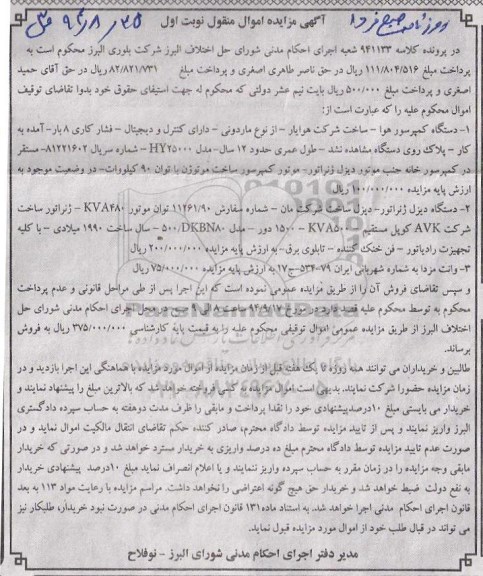 روزنامه صبح فردا ۹۴/۸/۲۵
آگهی مزایده اموال منقول نوبت اول
در پرونده کلاسه ۹۴۱۱۳۳ شعبه اجرای احکام مدنی شورای حل اختلاف البرز شرکت بلوری البرز محکوم است به
پرداخت مبلغ ۱۱۱/۸۰۴/۵۱۶ ریال در حق ناصر طاهری اصغری و پرداخت مبلغ ۸۲/۸۲۱/۷۳۱ ریال در حق آقای حمید
اصغری و پرداخت مبلغ ۵۰۰/۰۰۰ ریال بابت نیم عشر دولتی که محکوم له جهت استیفای حقوق خود بدوا تقاضای توقیف
اموال محکوم علیه را که عبارت است از:
۱- دستگاه کمپرسور هوا - ساخت شرکت هوایار - از نوع ماردونی - دارای کنترل و دیجیتال - فشار کاری ۸ بار- آمده به
کار - پلاک روی دستگاه مشاهده نشد - طول عمری حدود ۱۲ سال-مدل HY۲۵۰۰۰ - شماره سریال ۸۱۲۲۱۶۰۲- مستقر
در کمپرسور خانه جنب موتور دیزل ژنراتور- موتور کمپرسور ساخت موتوژن با توان ۹۰ کیلووات- در وضعیت موجود به
ارزش پایه مزایده ۱۰۰/۰۰۰/۰۰۰ ریال
۲- دستگاه دیزل ژنراتور- دیزل ساخت شرکت مان - شماره سفارش ۱۱۲۶۱/۹۰ توان موتور KVA۴۸۰ - ژنراتور ساخت
شرکت AVK کوپل مستقیم - KVA۵۰۰ - ۱۵۰۰ دور - مدل ۵۰۰/DKBN۸۰ - سال ساخت ۱۹۹۰ میلادی - با کلیه
تجهیزت رادیاتور - فن خنک کننده - تابلوی برق- به ارزش پایه مزایده ۲۰۰/۰۰۰/۰۰۰ ریال
۳- وانت مزدا به شماره شهربانی ایران ۷۹-۵۳۴ج۱۷ به ارزش پایه مزایده ۷۵/۰۰۰/۰۰۰ ریال
و سپس تقاضای فروش آن را از طریق مزایده عمومی نموده است که این اجرا پس از طی مراحل قانونی و عدم پرداخت
محکوم به توسط محکوم علیه قصد دارد در مورخ ۹۴/۹/۱۷ ساعت ۸ الی ۹ صبح در محل اجرای احکام مدنی شورای حل
اختلاف البرز از طریق مزایده عمومی اموال توقیفی محکوم علیه را به قیمت پایه کارشناسی ۳۷۵/۰۰۰/۰۰۰ ریال به فروش
برساند.
طالبین و خریداران می توانند همه روزه تا یک هفته قبل از زمان مزایده از اموال مورد مزایده با هماهنگی این اجرا بازدید و در
زمان مزایده حضورا شرکت نمایند. بدیهی است اموال مزایده به کسی فروخته خواهد شد که بالاترین مبلغ را پیشنهاد نمایند و
خریدار می بایستی مبلغ ۱۰ درصد پیشنهادی خود را نقدا پرداخت و مابقی را ظرف مدت دوهفته به حساب سپرده دادگستری
البرز واریز نمایند و پس از تایید مزایده توسط دادگاه محترم، صادر کننده حکم تقاضای انتقال مالکیت اموال نماید و در
صورت عدم تایید مزایده توسط دادگاه محترم مبلغ ده درصد واریزی به خریدار مسترد خواهد شد و در صورتی که خریدار
مابقی وجه مزایده را در زمان مقرر به حساب سپرده واریز ننمایند و یا اعلام انصراف نماید مبلغ ۱۰ درصد پیشنهادی خریدار
به نفع دولت ضبط خواهد شد و خریدار حق هیچ گونه اعتراضی را نخواهد داشت. مراسم مزایده با رعایت مواد ۱۱۳ به بعد
قانون اجرای احکام مدنی اجرا خواهد شد. به استناد ماده ۱۳۱ قانون اجرای احکام مدنی در صورت نبود خریدار، طلبکار نیز
می تواند در قبال طلب خود از اموال مورد مزایده قبول نماید.
مدیر دفتر اجرای احکام مدنی شورای البرز - نوفلاح